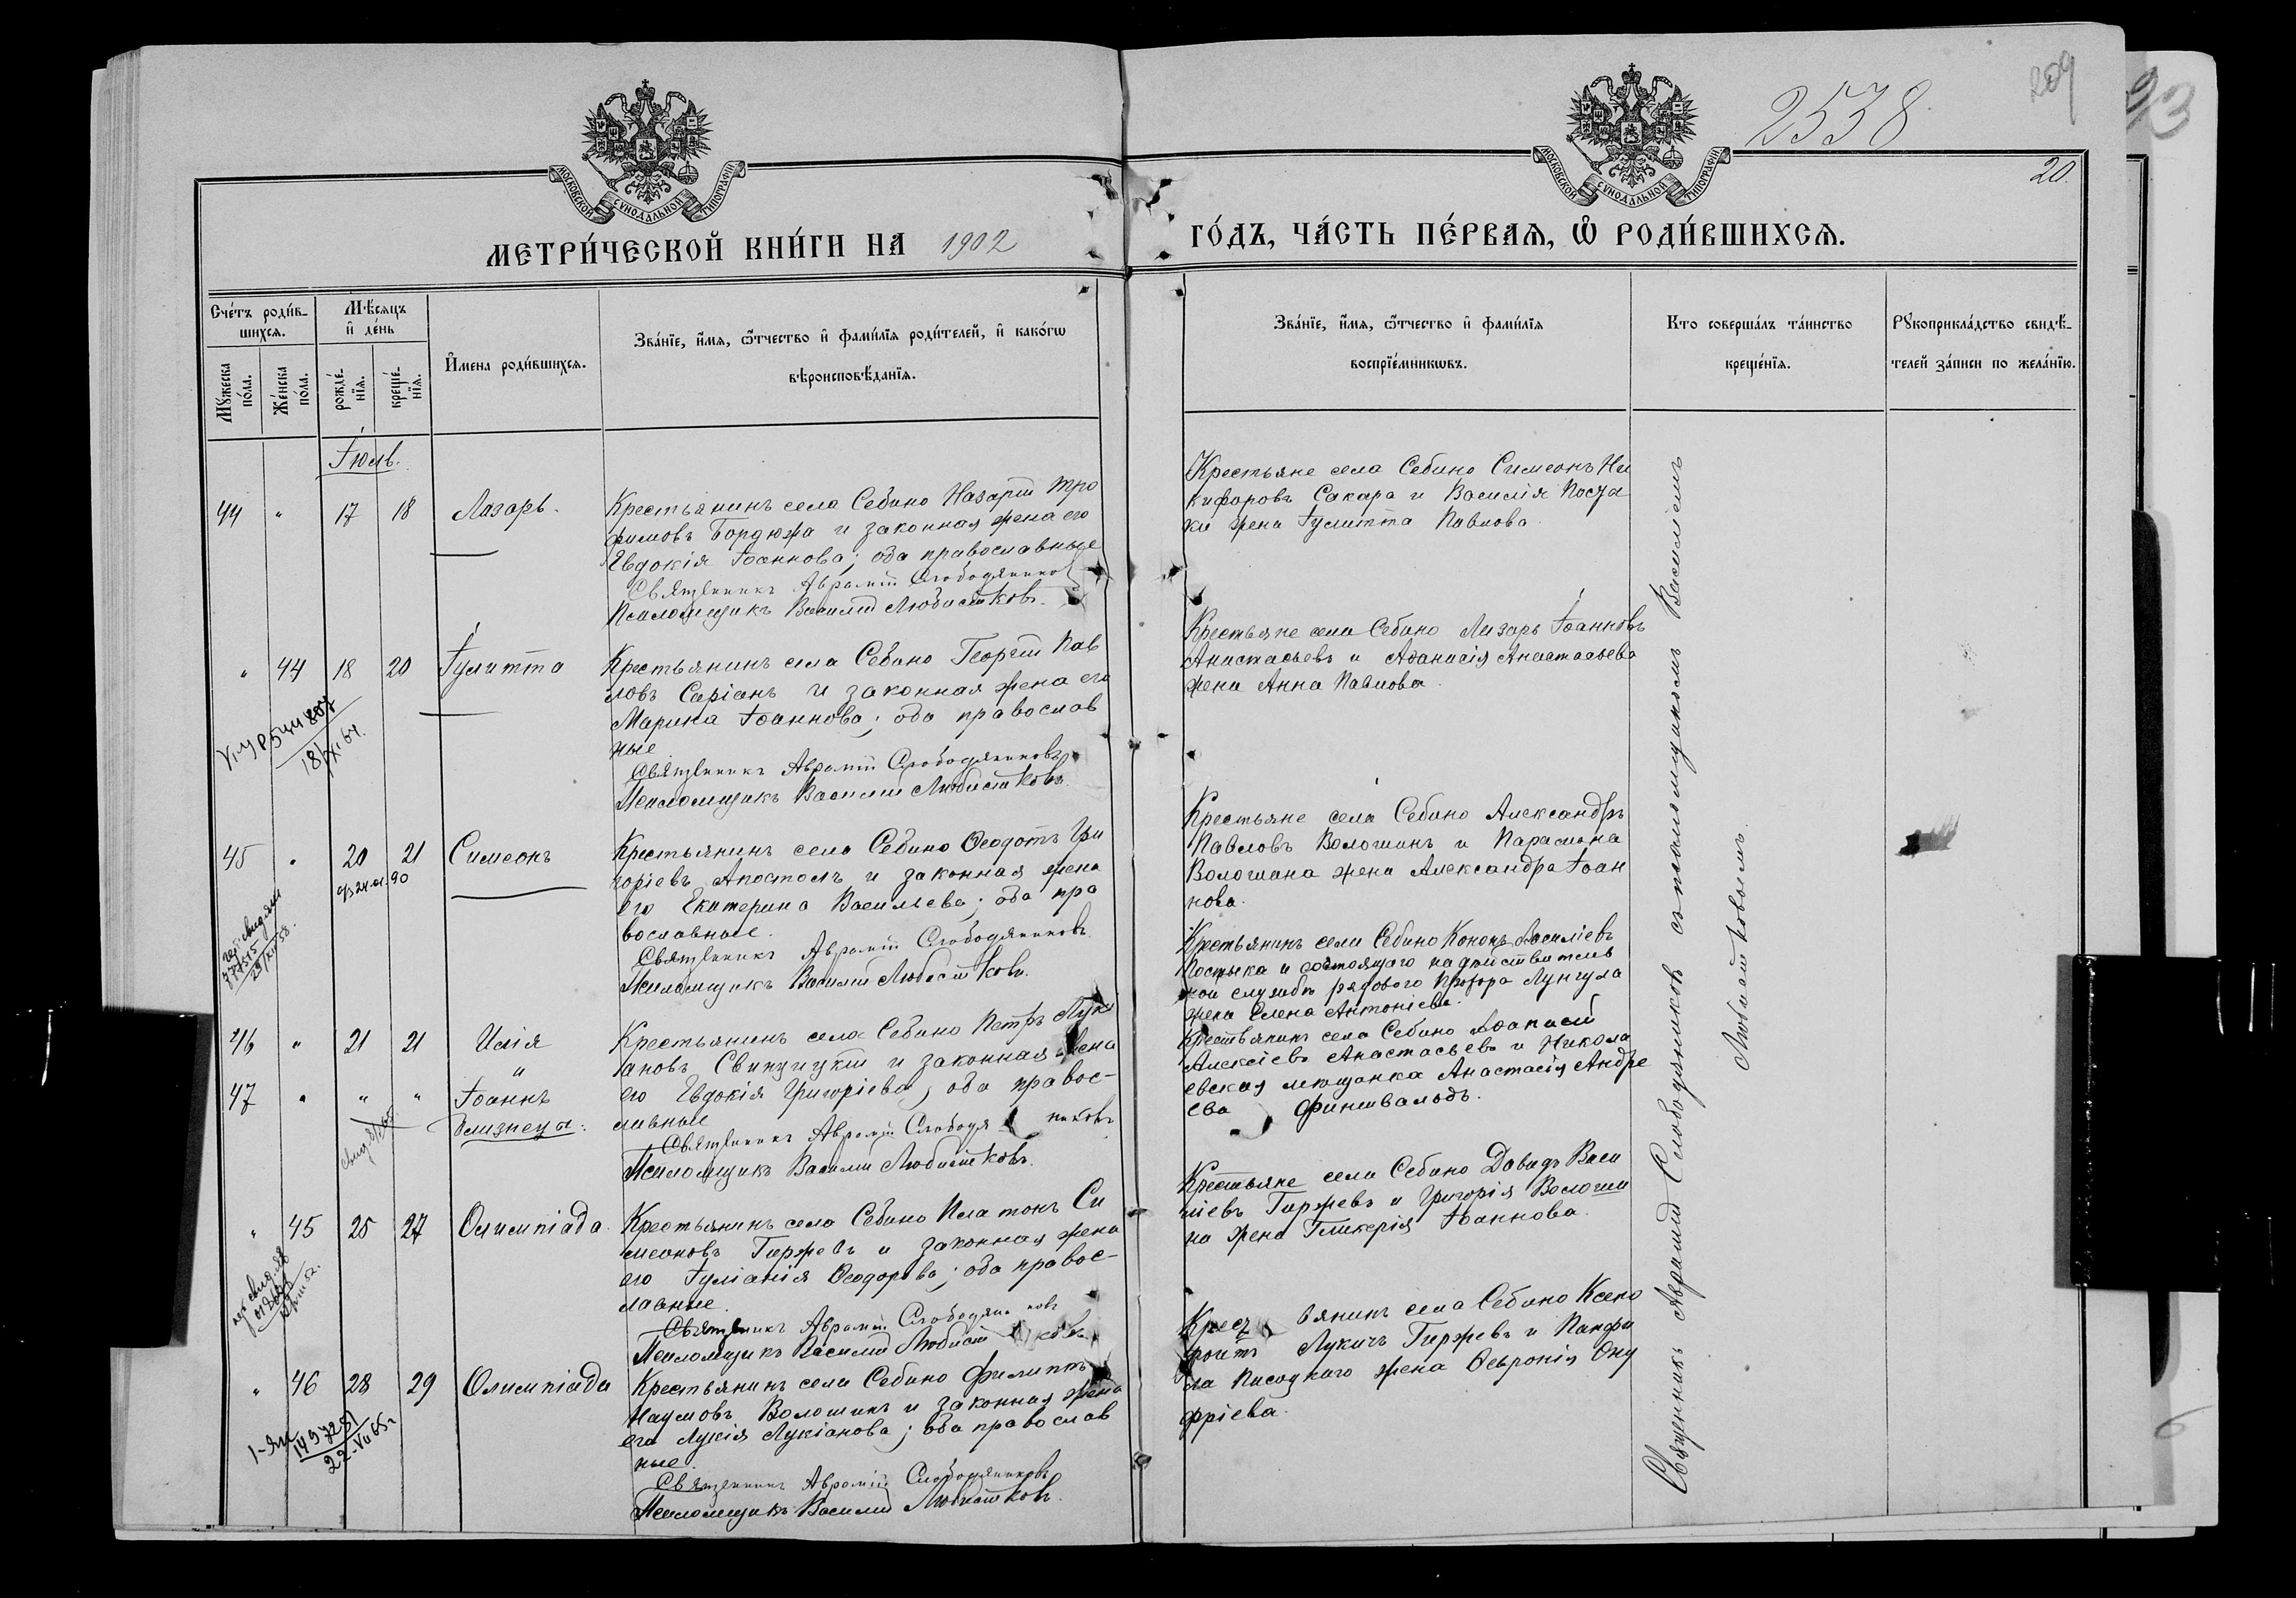 2538
209
93
20.
МОСКОВСКОЙ СѴНОДАЛЬНОЙ ТИПОГРАФІИ
МОСКОВСКОЙ СѴНОДАЛЬНОЙ ТИПОГРАФІИ
МЕТРИ́ЧЕСКОЙ КНИ́ГИ НА 1902
ГО́ДЪ, ЧА́СТЬ ПЕ́РВАЯ, Ѽ РОДИ́ВШИХСЯ.
Сче́тъ роди́в-
шихся.
Мꙋ́жеска по́ла.
Же́нска по́ла.
Мѣ́сяцъ
и҆ де́нь
рожде́-
нїя.
креще́-
нїя.
И҆мена роди́вшихся.
Зва́нїе, и҆́мя, ѻ҆́тчество и҆ фами́лїя роди́телей, и҆ како́гѡ
вѣроисповѣ́данїя.
Зва́нїе, и҆́мя, ѻ҆́тчество и҆ фами́лїя
воспрїе́мникѡвъ.
Кто соверша́лъ та́инство
креще́нїя.
Рꙋкоприкла́дство свидѣ́-
телей за́писи по жела́нїю.
Іюль.
44 " 17 18 Лазарь.
Крестьянинъ села Себино Назарій Тро
фимовъ Бордюжа и законная жена его
Евдокія Іоаннова; оба православные
Священникъ Аврамій Слободяников
Псаломщикъ Василій Любистковъ.
Крестьяне села Себино Симеонъ Ни
кифоровъ Сакара и Василія Посты
ки жена Іулитта Павлова.
" 44 18 20 Іулитта
Крестьянинъ села Себино Георгій Пав
ловъ Саріанъ и законная жена его
Марина Іоаннова; оба православ
ные
Священникъ Аврамій Слободяниковъ
Псаломщикъ Василій Любистковъ.
18/XI 64.
Крестьяне села Себино Лазарь Іоанновъ
Анастасьевъ и Аѳанасія Анастасьева
жена Анна Павлова.
45 " 20 21 Симеонъ
Крестьянинъ села Себино Ѳеодотъ Гри
горіевъ Апостолъ и законная жена
его Екатерина Васильева; оба пра
вославные.
Священникъ Аврамій Слободяниковъ
Псаломщикъ Василій Любистковъ.
Крестьяне села Себино Александръ
Павловъ Волошинъ и Парамона
Волошина жена Александра Іоан
нова.
46 " 21 21 Илія
47 " " " Іоаннъ
близнецы.
Крестьянинъ села Себино Петръ Луки
ановъ Свинцицкій и законная жена
его Евдокія Григоріева; оба правос-
лавные
Священникъ Аврамій Слободяниковъ
Псаломщикъ Василій Любистковъ.
Крестьянинъ села Себино Кононъ Василіевъ
Постыка и состоящаго на дѣйствитель
ной службѣ рядового Прохора Лунгула
жена Елена Антоніева.
Крестьянинъ села Себино Аѳанасій
Алексіевъ Анастасьевъ и Никола
евская мѣщанка Анастасія Андре
ева Финивальдъ.
" 45 25 27 Олимпіада.
Крестьянинъ села Себино Платонъ Си
меоновъ Гиржевъ и законная жена
его Іуліанія Ѳеодорова; оба правос-
лавные.
Священникъ Аврамій Слободяниковъ
Псаломщикъ Василій Любистковъ.
Крестьяне села Себино Давидъ Васи
ліевъ Гиржевъ и Григорія Волоши
на жена Гликерія Іоаннова.
" 46 28 29 Олимпіада
Крестьянинъ села Себино Филиппъ
Наумовъ Волошинъ и законная жена
его Лукія Лукіанова; оба православ
ные.
Священникъ Аврамій Слободяниковъ
Псаломщикъ Василій Любистковъ.
22-VII 65 г
Крестьянинъ села Себино Ксено
фонтъ Лукичъ Гиржевъ и Панфи
ла Писоцкаго жена Ѳевронія Ону
фріева.
Священникъ Аврамій Слободяниковъ съ псаломщикомъ Василіемъ
Любистковымъ.